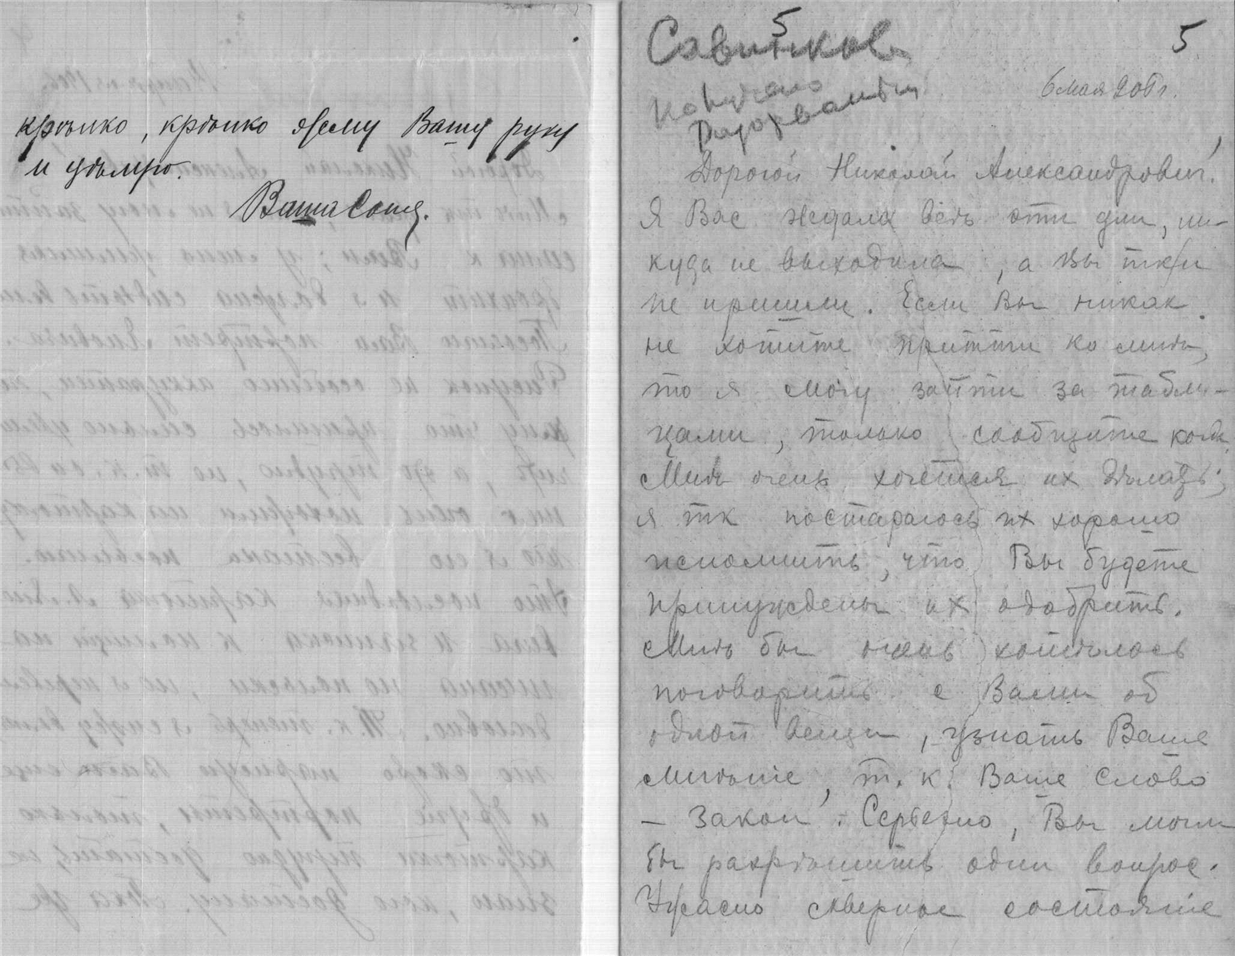 крѣпко, крѣпко жму Вашу руку
и цѣлую.
Ваша Соня.
5
5
Савинков
Получено
разорванным
6 мая
Дорогой Николай Александрович!
Я Вас ждала весь эти дни, ни-
куда не выходила, а Вы тки
не пришли. Если Вы никак
не хотите притти ко мнѣ,
то я могу зайти за табли-
цами, только сообщите когда
Мнѣ очень хочется их дѣлать;
я тк постараюсь их хорошо
исполнить, что Вы будете
принуждены их одобрить.
Мнѣ бы очень хотѣлось
поговорить с Вами об
одной вещи, узнать Ваше
мнѣнiе, т.к. Ваше слово
– закон. Серьезно, Вы могли
бы разрѣшить один вопрос.
Ужасно скверное состоянiе